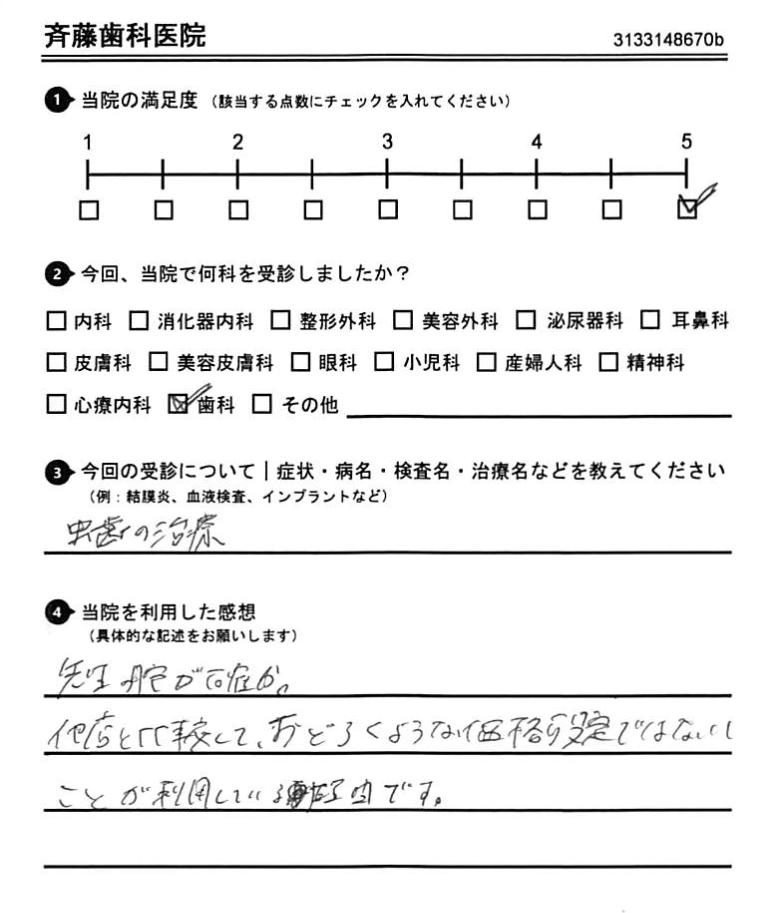 斉藤歯科医院
3133148670b
1 当院の満足度 (該当する点数にチェックを入れてください)
1 2 3 4 5
2 今回、当院で何科を受診しましたか?
内科 消化器内科 整形外科 美容外科 泌尿器科 耳鼻科
皮膚科 美容皮膚科 眼科 小児科 産婦人科 精神科
心療内科 歯科 その他
3 今回の受診について|症状・病名・検査名・治療名などを教えてください
(例:結膜炎、血液検査、インプラントなど)
虫歯の治療
4 当院を利用した感想
(具体的な記述をお願いします)
先生の腕が確か。
他店と比較して、おどろくような価格設定ではない
ことが利用している理由です。